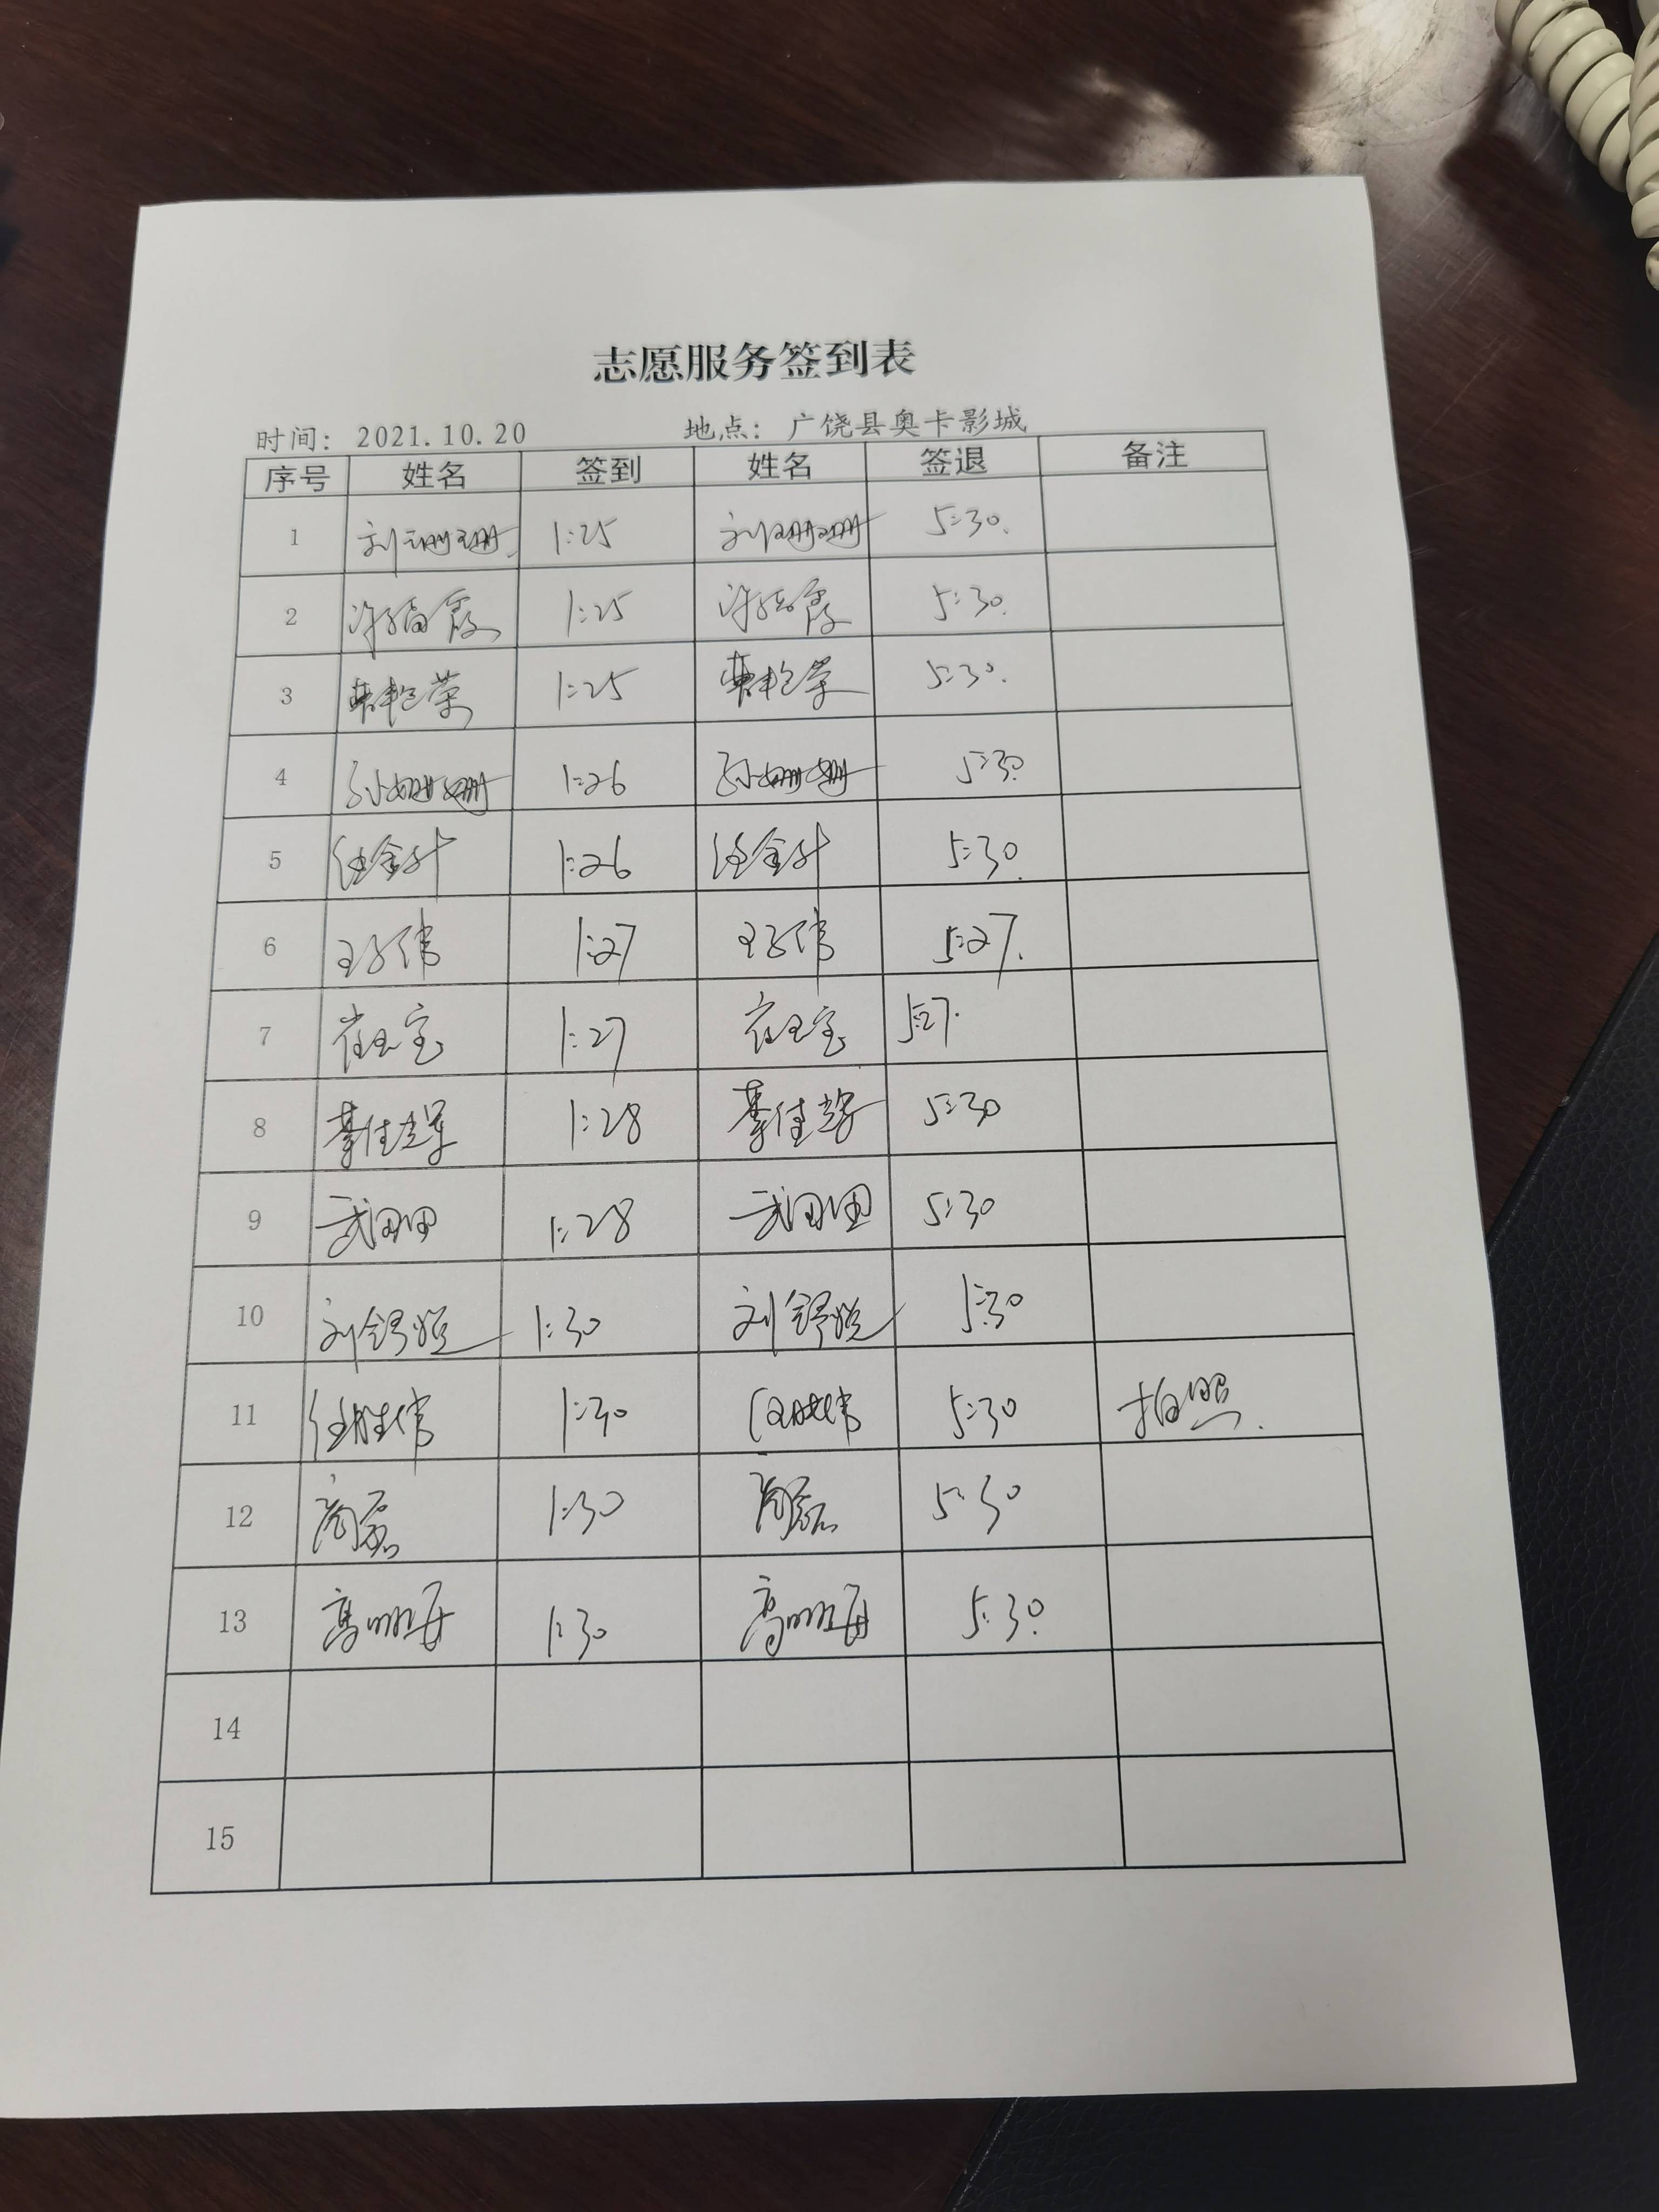 志愿服务签到表
时间: 2021.10.20 地点: 广饶县奥卡影城
序号 姓名 签到 姓名 签退 备注
1 刘珊珊 1:25 刘珊珊 5:30.
2 1:25 5:30.
3 1:25 5:30.
4 孙姗姗 1:26 孙姗姗 5:30
5 任金叶 1:26 任金叶 5:30.
6 王子伟 1:27 王子伟 5:27.
7 崔玉宝 1:27 崔玉宝 5:27.
8 1:28 5:30
9 武团团 1:28 武团团 5:30
10 刘 1:30 刘 5:30
11 任胜伟 1:30 任胜伟 5:30 拍照.
12 1:30 5:30
13 高 1:30 高 5:30
14
15